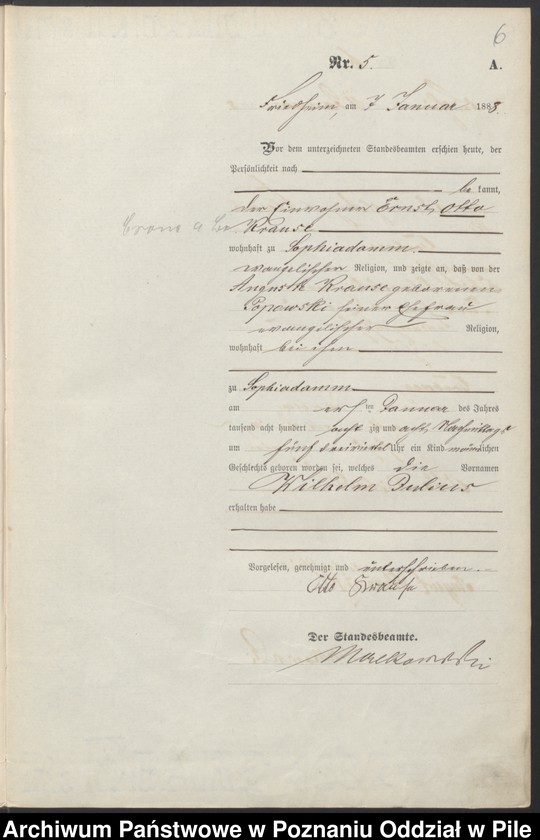 6
Nr. 5. A.
Friedheim, am 7 Januar 1888.
Vor dem unterzeichneten Standesbeamten erschien heute, der
Persönlichkeit nach
be kannt,
der Einwohner Ernst Otto
Krause
wohnhaft zu Sophiadamm
evangelischer Religion, und zeigte an, daß von der
Auguste Krause geborenen
Popowski seiner Ehefrau
evangelischer Religion,
wohnhaft bei ihm
zu Sophiadamm
am ersten Januar des Jahres
tausend acht hundert acht zig und acht, Nachmittags
um fünf dreiviertel Uhr ein Kind männlichen
Geschlechts geboren worden sei, welches die Vornamen
Wilhelm Julius
erhalten habe
Vorgelesen, genehmigt und unterschrieben
Otto Krause
Der Standesbeamte.
Malkowski
Archiwum Państwowe w Poznaniu Oddział w Pile